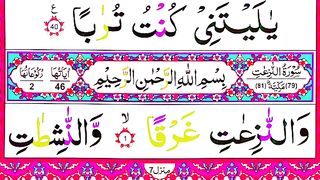 يٰلَيْتَنِيْ كُنْتُ تُرٰبًا
ع
40
سُوْرَةُ النّٰزِعٰتِ
(79) مَكِّيَّةٌ (81)
بِسْمِ اللّٰهِ الرَّحْمٰنِ الرَّحِيْمِ
اٰيَاتُهَا 46
رُكُوْعَاتُهَا 2
وَالنّٰزِعٰتِ غَرْقًا ۙ 1 وَّالنّٰشِطٰتِ
منزل 7